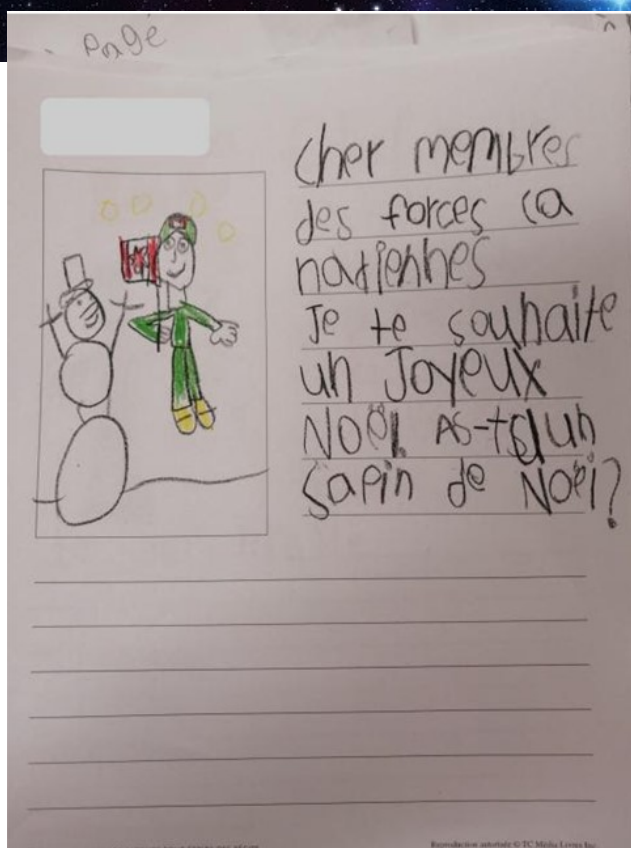 Page
cher membres
des forces ca
nadiennes
Je te souhaite
un Joyeux
NOËL AS-tu un
sapin de Noël?
Reproduction autorisée © TC Média Livres Inc.